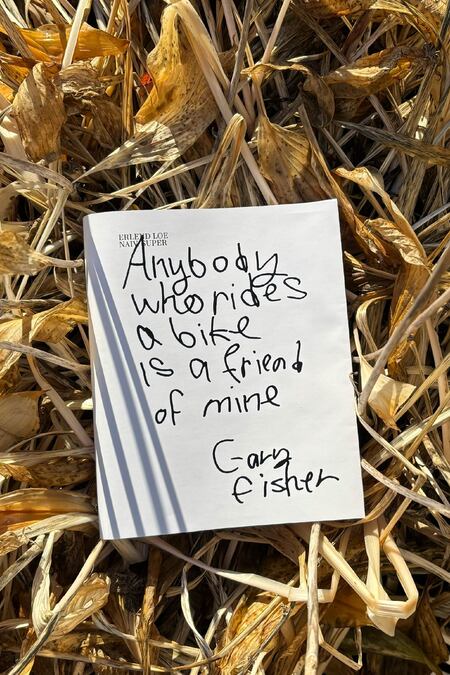 ERLEND LOE
NAIV.SUPER
Anybody
who rides
a bike
is a friend
of mine
Gary
fisher